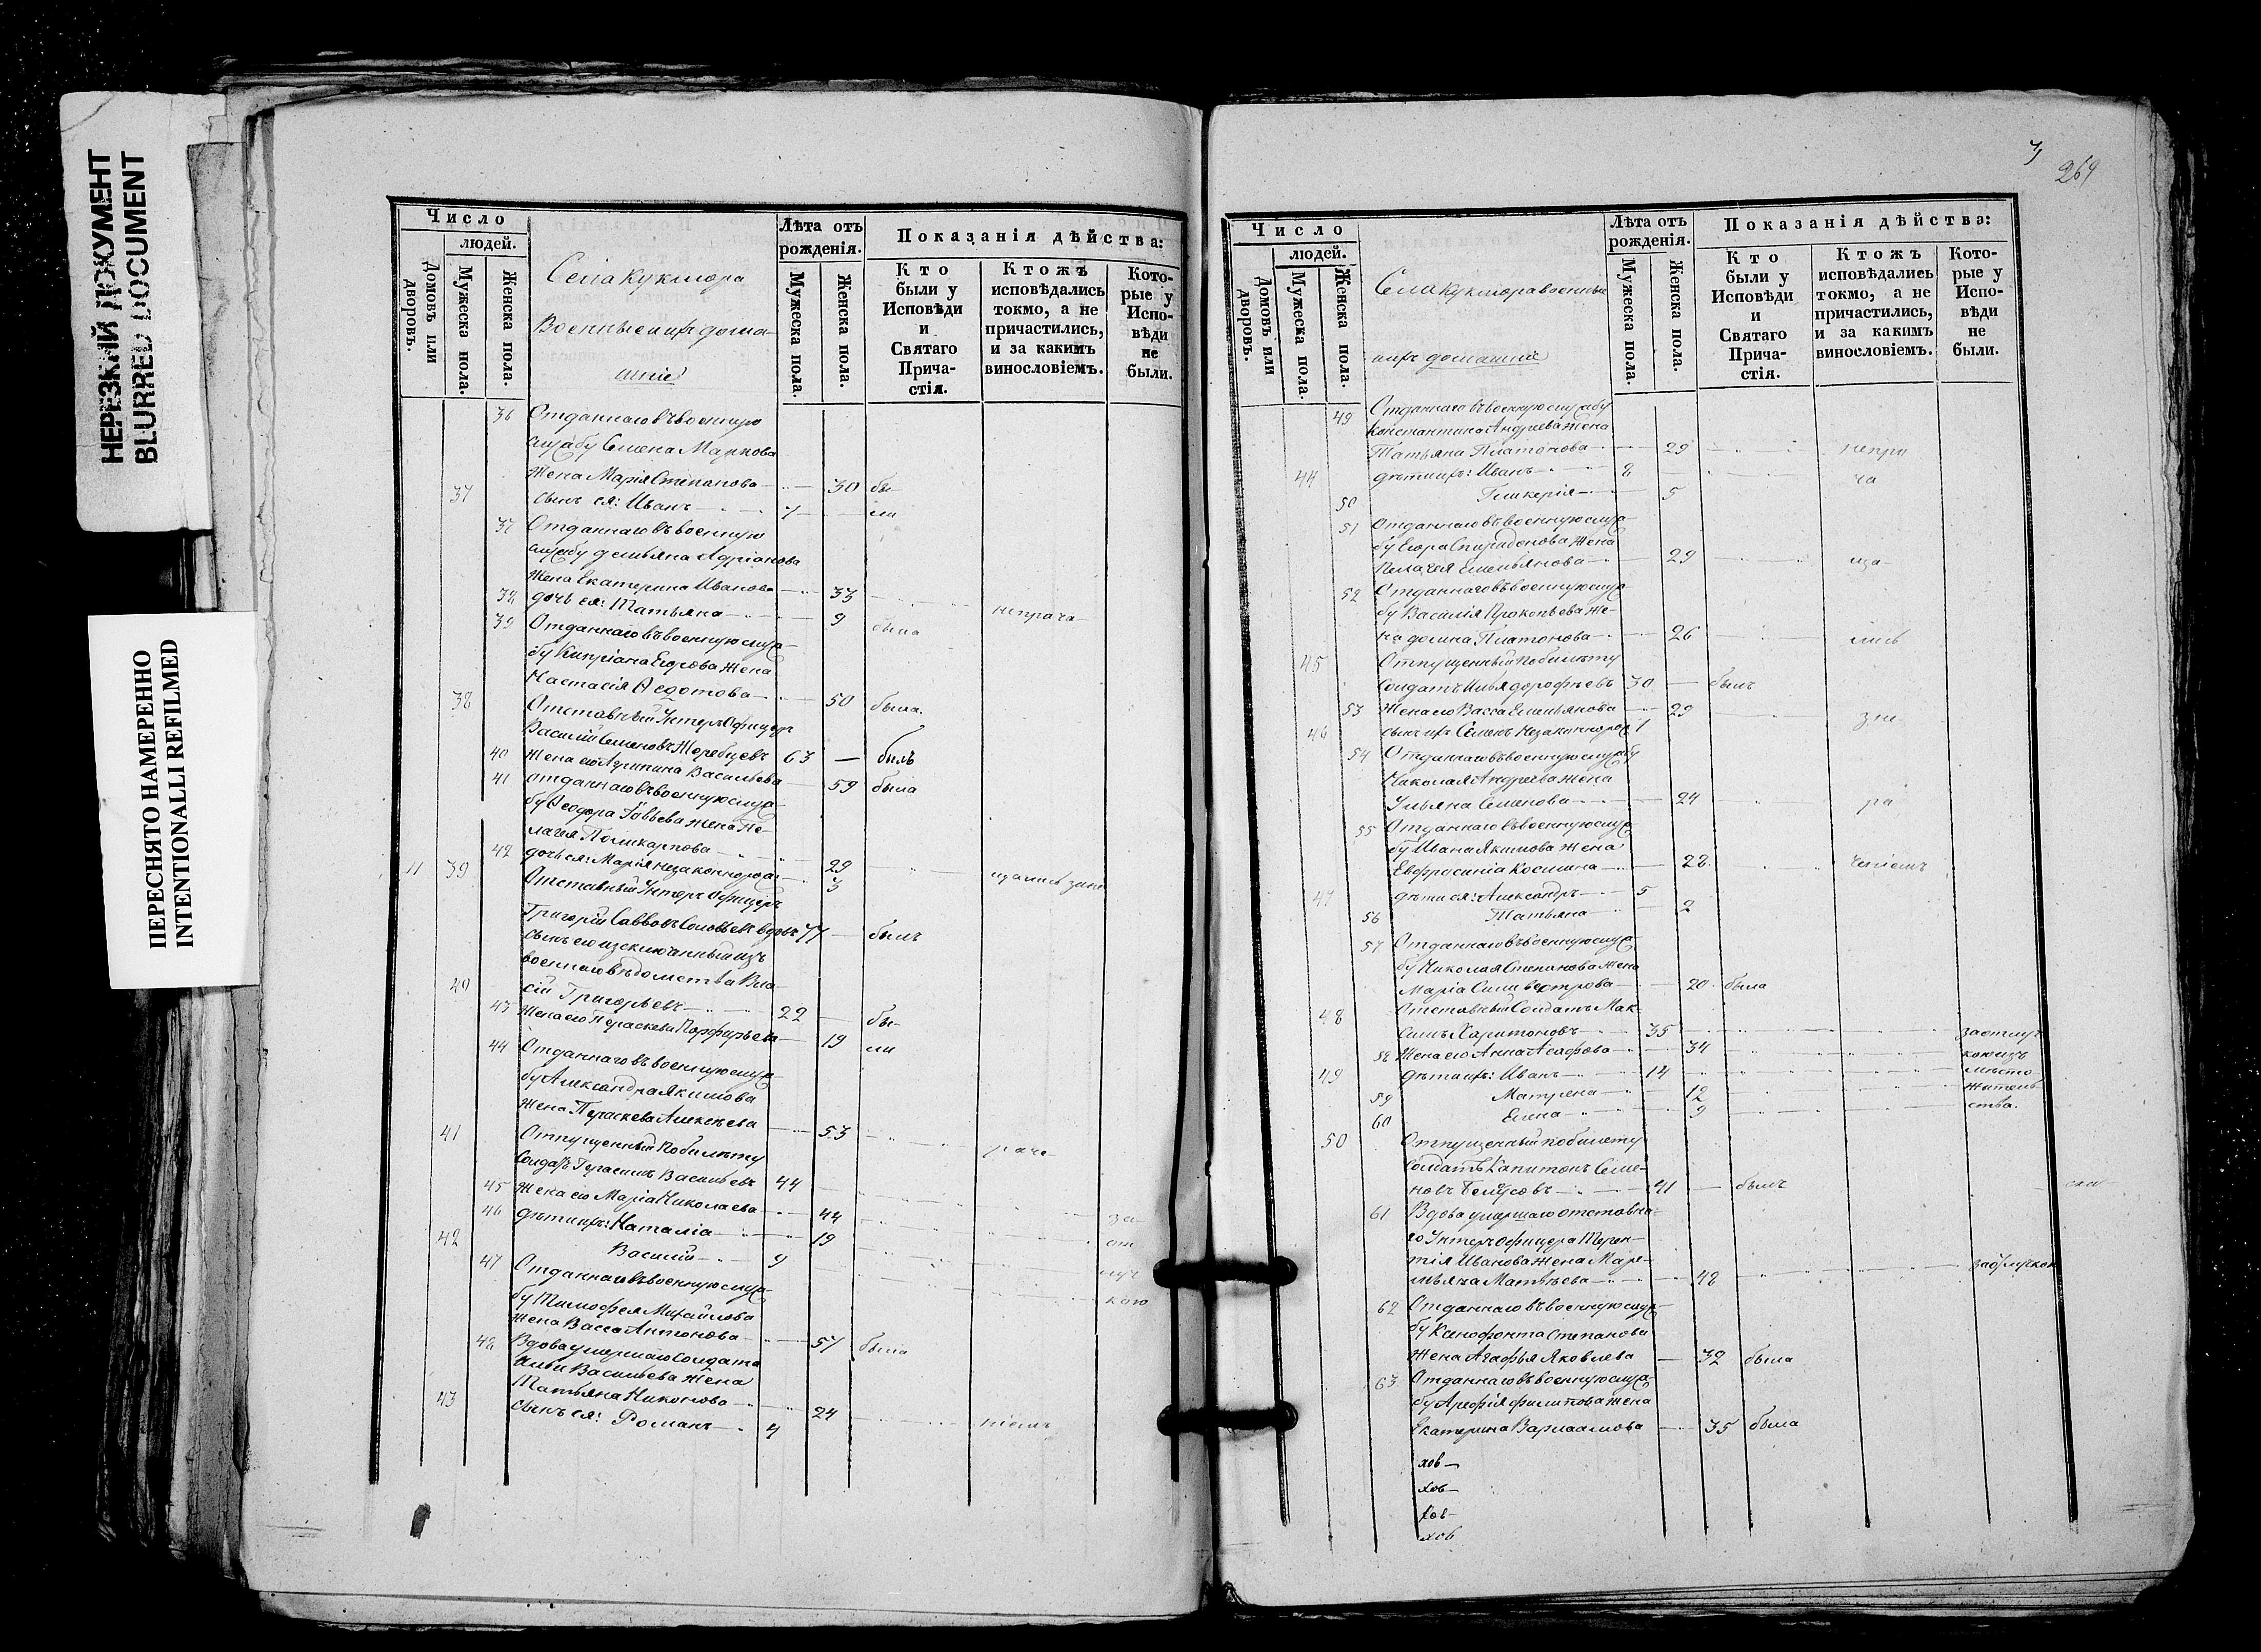 НЕРЕЗКИЙ ДОКУМЕНТ
BLURRED DOCUMENT
ПЕРЕСНЯТО НАМЕРЕННО
INTENTIONALLI REFILMED
Число
людей.
Домовъ или дворовъ.
Мужеска пола.
Женска пола.
Села Кукмора
Военные и ихъ дома-
шніе
Лѣта отъ рожденія.
Мужеска пола.
Женска пола.
Показанія дѣйства:
Кто были у Исповѣди и Святаго Прича-стія.
Ктожъ исповѣдались токмо, а не причастились, и за какимъ винословіемъ.
Кото-рые у Испо-вѣди не были.
36 Отданнаго въ военную
службу Семена Маркова
жена Марія Степанова 30 бы-
37 сынъ ея: Иванъ 7 ли
37 Отданнаго въ военную
службу Демьяна Адріанова
жена Екатерина Иванова 33
38 дочь ея: Татьяна 9 неприча-
39 Отданнаго въ военную служ- была
бу Кипріана Егорова жена
Настасія Ѳедотова 50 была.
38 Отставный Унтеръ Офицеръ
Василій Семеновъ Жеребцовъ 63 — былъ
40 жена его Агрипина Васильева 59 была
41 отданнаго въ военную служ-
бу Ѳеодора жена Пе-
лагея Поликарпова 29
42 дочь ея: Марія незаконнорож. 3 щались за не
11 39 Отставный Унтеръ Офицеръ
Григорій Саввовъ Соловьевъ вдовъ 77 былъ
сынъ его изключенный изъ
военнаго вѣдомства Вла-
40 сій Григорьевъ 22 бы-
43 Жена его Параскева Порфирьева 19 ли
44 Отданнаго въ военную служ-
бу Александра Якимова
жена Параскева Алексѣева 53
41 Отпущенный по билету раче-
Солдатъ Герасимъ Васильевъ 44
45 Жена его Марія Николаева 44 за
46 дѣти ихъ: Наталія 19 от
42 Василій 9 луч
47 Отданнаго въ военную служ- кою
бу Тимофея Михайлова
жена Васса Антонова 57 была
48 Вдова умершаго Солдата
Ильи Васильева жена
Татьяна Никонова 24
43 сынъ ея: Романъ 4 ніемъ
264
Число
людей.
Домовъ или дворовъ.
Мужеска пола.
Женска пола.
Села Кукмора военные
и ихъ домашніе
Лѣта отъ рожденія.
Мужеска пола.
Женска пола.
Показанія дѣйства:
Кто были у Исповѣди и Святаго Прича-стія.
Ктожъ исповѣдались токмо, а не причастились, и за какимъ винословіемъ.
Кото-рые у Испо-вѣди не были.
49 Отданнаго въ военную службу
Константина Андреева жена
Татьяна Платонова 29 непри
44 дѣти ихъ: Иванъ 8 ча
50 Гликерія 5
51 Отданнаго въ военную служ-
бу Егора Спиридонова жена
Пелагея Емельянова 29 ща
52 Отданнаго въ военную служ-
бу Василія Прокопьева же-
на Домна Платонова 26 лись
45 Отпущенный по билету
Солдатъ Илья Дорофѣевъ 30 былъ
53 Жена его Васса Емельянова 29 за не
46 сынъ ихъ Семенъ Незаконнорож. 1
54 Отданнаго въ военную службу
Николая Андреева жена
Ульяна Семенова 24 ра
55 Отданнаго въ военную служ-
бу Ивана Якимова жена
Евфросинія Косьмина 28 ченіемъ
47 дѣти ея: Александръ 5
56 Татьяна 2
57 Отданнаго въ военную служ-
бу Николая Степанова жена
Марія Силивестрова 20 была
48 Отставный Солдатъ Мак-
симъ Харитоновъ 35 за отлуч
58 Жена его Анна Агафова 34 кою изъ
49 дѣти ихъ: Иванъ 14 мѣсто
59 Матрена 12 житель
60 Елена 9 ства.
50 Отпущенный по билету
солдатъ Капитонъ Семе-
новъ Белусовъ 41 былъ
61 Вдова умершаго отставна-
го Унтеръ Офицера Терен-
тія Иванова жена Маре-
мьяна Матвѣева 48 за отлучкою
62 Отданнаго въ военную служ-
бу Ксенофонта Степанова
жена Агафья Яковлева 32 была
63 Отданнаго въ военную служ-
бу Арефія Филипова жена
Екатерина Варлаамова 35 была